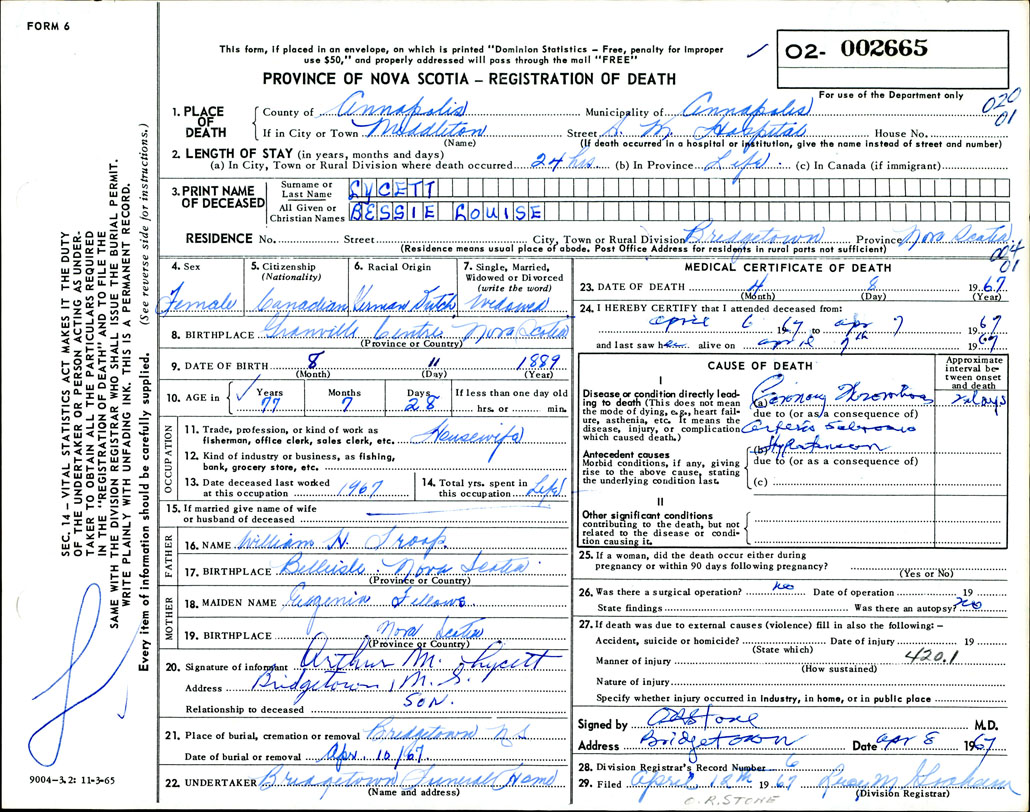 FORM 6
This form, if placed in an envelope, on which is printed "Dominion Statistics – Free, penalty for improper
use $50," and properly addressed will pass through the mail "FREE"
PROVINCE OF NOVA SCOTIA – REGISTRATION OF DEATH
02- 002665
For use of the Department only
020
01
1. PLACE OF DEATH
County of Annapolis Municipality of Annapolis
If in City or Town Middleton Street S. M. Hospital House No.
(Name) (If death occurred in a hospital or institution, give the name instead of street and number)
2. LENGTH OF STAY (in years, months and days)
(a) In City, Town or Rural Division where death occurred 24 hrs (b) In Province Life (c) In Canada (if immigrant)
3. PRINT NAME OF DECEASED
Surname or Last Name LYCETT
All Given or Christian Names BESSIE LOUISE
RESIDENCE No. Street City, Town or Rural Division Bridgetown Province Nova Scotia
(Residence means usual place of abode. Post Office Address for residents in rural parts not sufficient)
004
01
4. Sex
Female
5. Citizenship
(Nationality)
Canadian
6. Racial Origin
German Dutch
7. Single, Married,
Widowed or Divorced
(write the word)
Widowed
8. BIRTHPLACE Granville Centre Nova Scotia
(Province or Country)
9. DATE OF BIRTH 8 11 1889
(Month) (Day) (Year)
10. AGE in Years Months Days If less than one day old
77 7 28 hrs. or min.
OCCUPATION
11. Trade, profession, or kind of work as
fisherman, office clerk, sales clerk, etc. Housewife
12. Kind of industry or business, as fishing,
bank, grocery store, etc.
13. Date deceased last worked
at this occupation 1967
14. Total yrs. spent in
this occupation Life
15. If married give name of wife
or husband of deceased
FATHER
16. NAME William H. Troop
17. BIRTHPLACE Belleisle Nova Scotia
(Province or Country)
MOTHER
18. MAIDEN NAME Eugenia Fellows
19. BIRTHPLACE Nova Scotia
(Province or Country)
20. Signature of informant Arthur M. Lycett
Address Bridgetown, N.S.
Relationship to deceased SON.
21. Place of burial, cremation or removal Bridgetown N S
Date of burial or removal Apr. 10/67
22. UNDERTAKER Bridgetown Funeral Home
(Name and address)
MEDICAL CERTIFICATE OF DEATH
23. DATE OF DEATH 4 8 1967
(Month) (Day) (Year)
24. I HEREBY CERTIFY that I attended deceased from:
april 6 1967 to apr 7 1967
and last saw her alive on april 7th 1967
CAUSE OF DEATH
Approximate
interval be-
tween onset
and death
I
Disease or condition directly lead-
ing to death (This does not mean
the mode of dying, e.g., heart fail-
ure, asthenia, etc. It means the
disease, injury, or complication
which caused death.)
(a) Coronary Thrombosis
due to (or as a consequence of)
Antecedent causes
Morbid conditions, if any, giving
rise to the above cause, stating
the underlying condition last.
(b) Hypertension
due to (or as a consequence of)
(c)
II
Other significant conditions
contributing to the death, but not
related to the disease or condi-
tion causing it.
25. If a woman, did the death occur either during
pregnancy or within 90 days following pregnancy?
(Yes or No)
26. Was there a surgical operation? No Date of operation 19
State findings Was there an autopsy? No
27. If death was due to external causes (violence) fill in also the following: –
Accident, suicide or homicide? Date of injury 19
(State which)
Manner of injury 420.1
(How sustained)
Nature of injury
Specify whether injury occurred in industry, in home, or in public place
Signed by Stone M.D.
Address Bridgetown Date Apr 8 1967
28. Division Registrar's Record Number 6
29. Filed April 12th 1967
(Division Registrar)
C.R. STONE
SEC. 14 – VITAL STATISTICS ACT MAKES IT THE DUTY
OF THE UNDERTAKER OR PERSON ACTING AS UNDER-
TAKER TO OBTAIN ALL THE PARTICULARS REQUIRED
IN THE "REGISTRATION OF DEATH" AND TO FILE THE
SAME WITH THE DIVISION REGISTRAR WHO SHALL ISSUE THE BURIAL PERMIT.
WRITE PLAINLY WITH UNFADING INK. THIS IS A PERMANENT RECORD.
Every item of information should be carefully supplied. (See reverse side for instructions.)
9004–3.2: 11-3-65